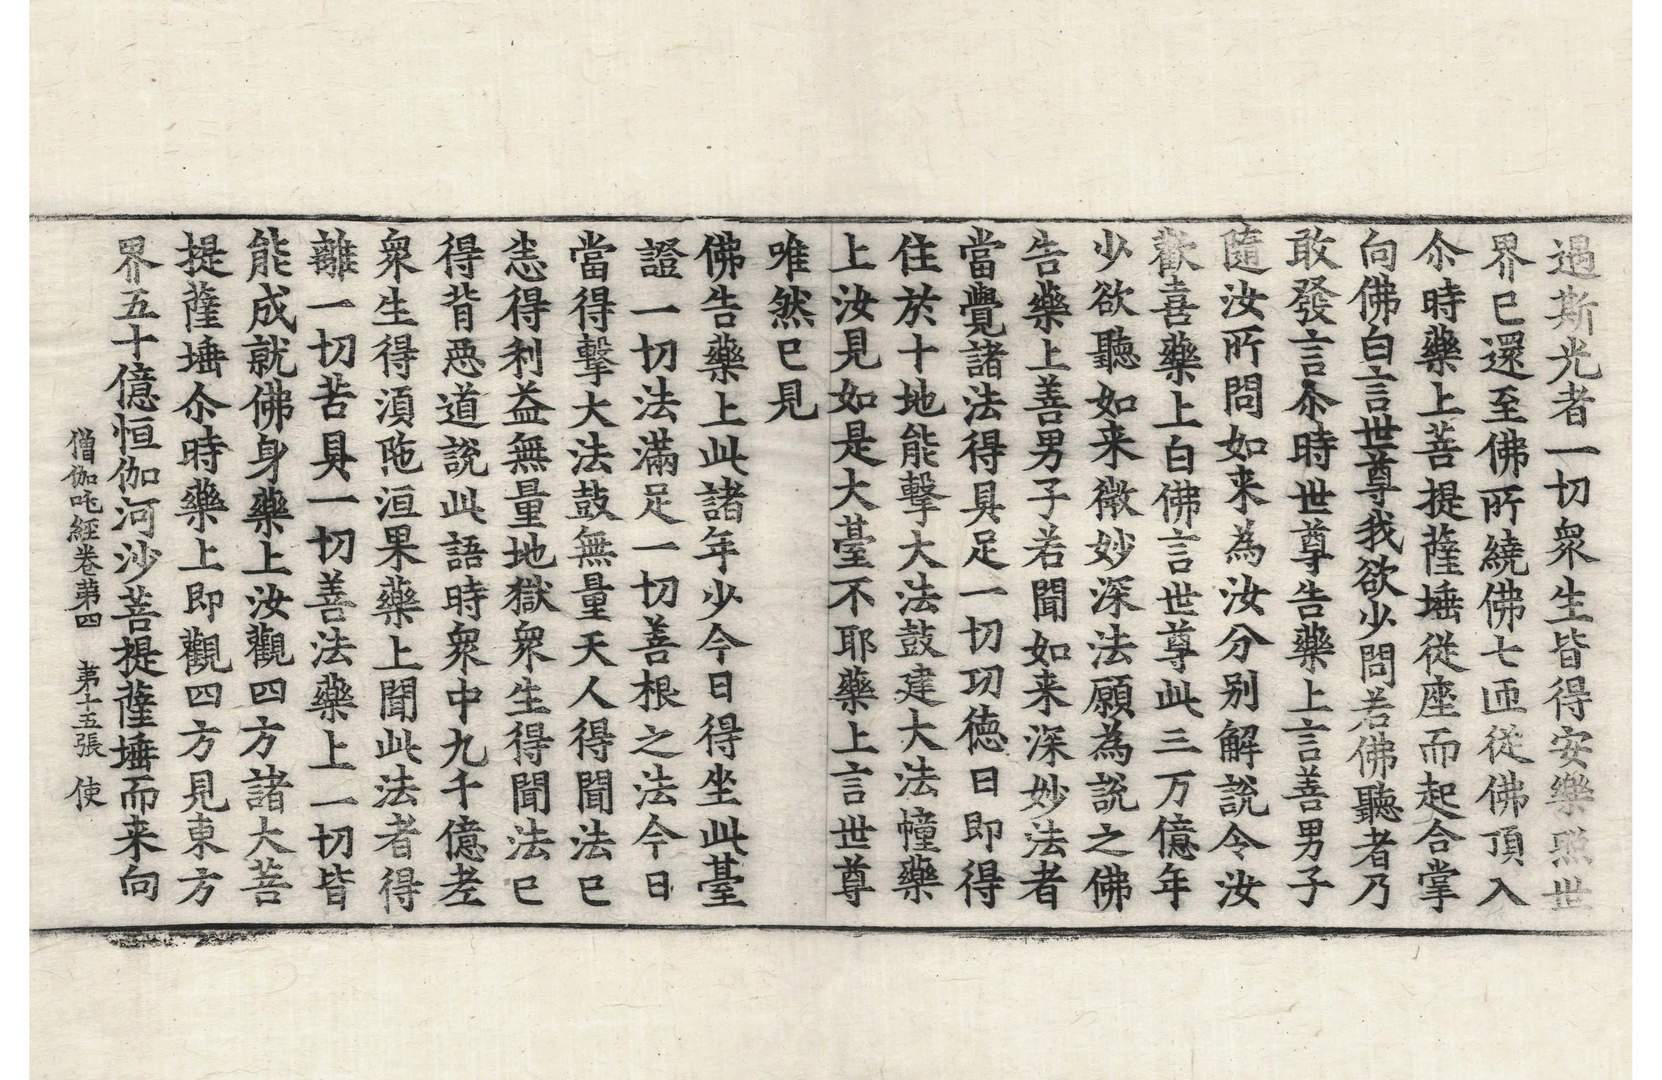 過斯光者一切衆生皆得安樂照世
界已還至佛所繞佛七迊從佛頂入
尒時藥上菩提薩埵從座而起合掌
向佛白言世尊我欲少問若佛聽者乃
敢發言尒時世尊告藥上言善男子
隨汝所問如来為汝分別解說令汝
歡喜藥上白佛言世尊此三万億年
少欲聽如来微妙深法願為說之佛
告藥上善男子若聞如来深妙法者
當覺諸法得具足一切功德日即得
住於十地能擊大法鼓建大法幢藥
上汝見如是大臺不耶藥上言世尊
唯然已見
佛告藥上此諸年少今日得坐此臺
證一切法滿足一切善根之法今日
當得擊大法鼓無量天人得聞法已
恙得利益無量地獄衆生得聞法已
得背惡道說此語時衆中九千億老
衆生得湏陁洹果藥上聞此法者得
離一切苦具一切善法藥上一切皆
能成就佛身藥上汝觀四方諸大菩
提薩埵尒時藥上即觀四方見東方
界五十億恒伽河沙菩提薩埵而来向
僧伽吒經卷第四 第十五張 使